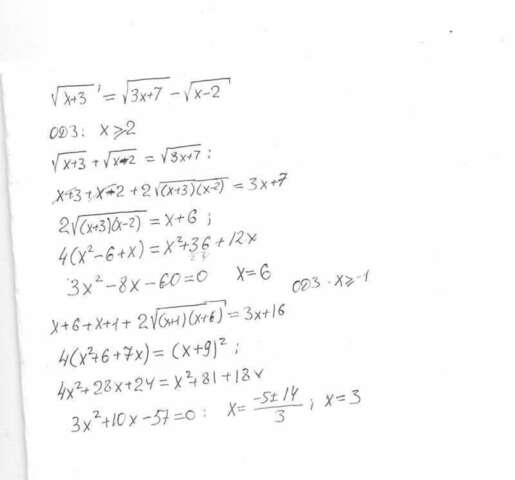 √(x+3) = √(3x+7) - √(x-2)
ОДЗ: x ⩾ 2
√(x+3) + √(x-2) = √(3x+7) :
x+3+x-2+2√((x+3)(x-2)) = 3x+7
2√((x+3)(x-2)) = x+6 ;
4(x²-6+x) = x²+36+12x
3x²-8x-60=0 x=6
ОДЗ · x ⩾ -1
x+6+x+1+2√((x+1)(x+6)) = 3x+16
4(x²+6+7x) = (x+9)² ;
4x²+28x+24 = x²+81+18x
3x²+10x-57=0 : x = (-5±14)/3 ; x=3